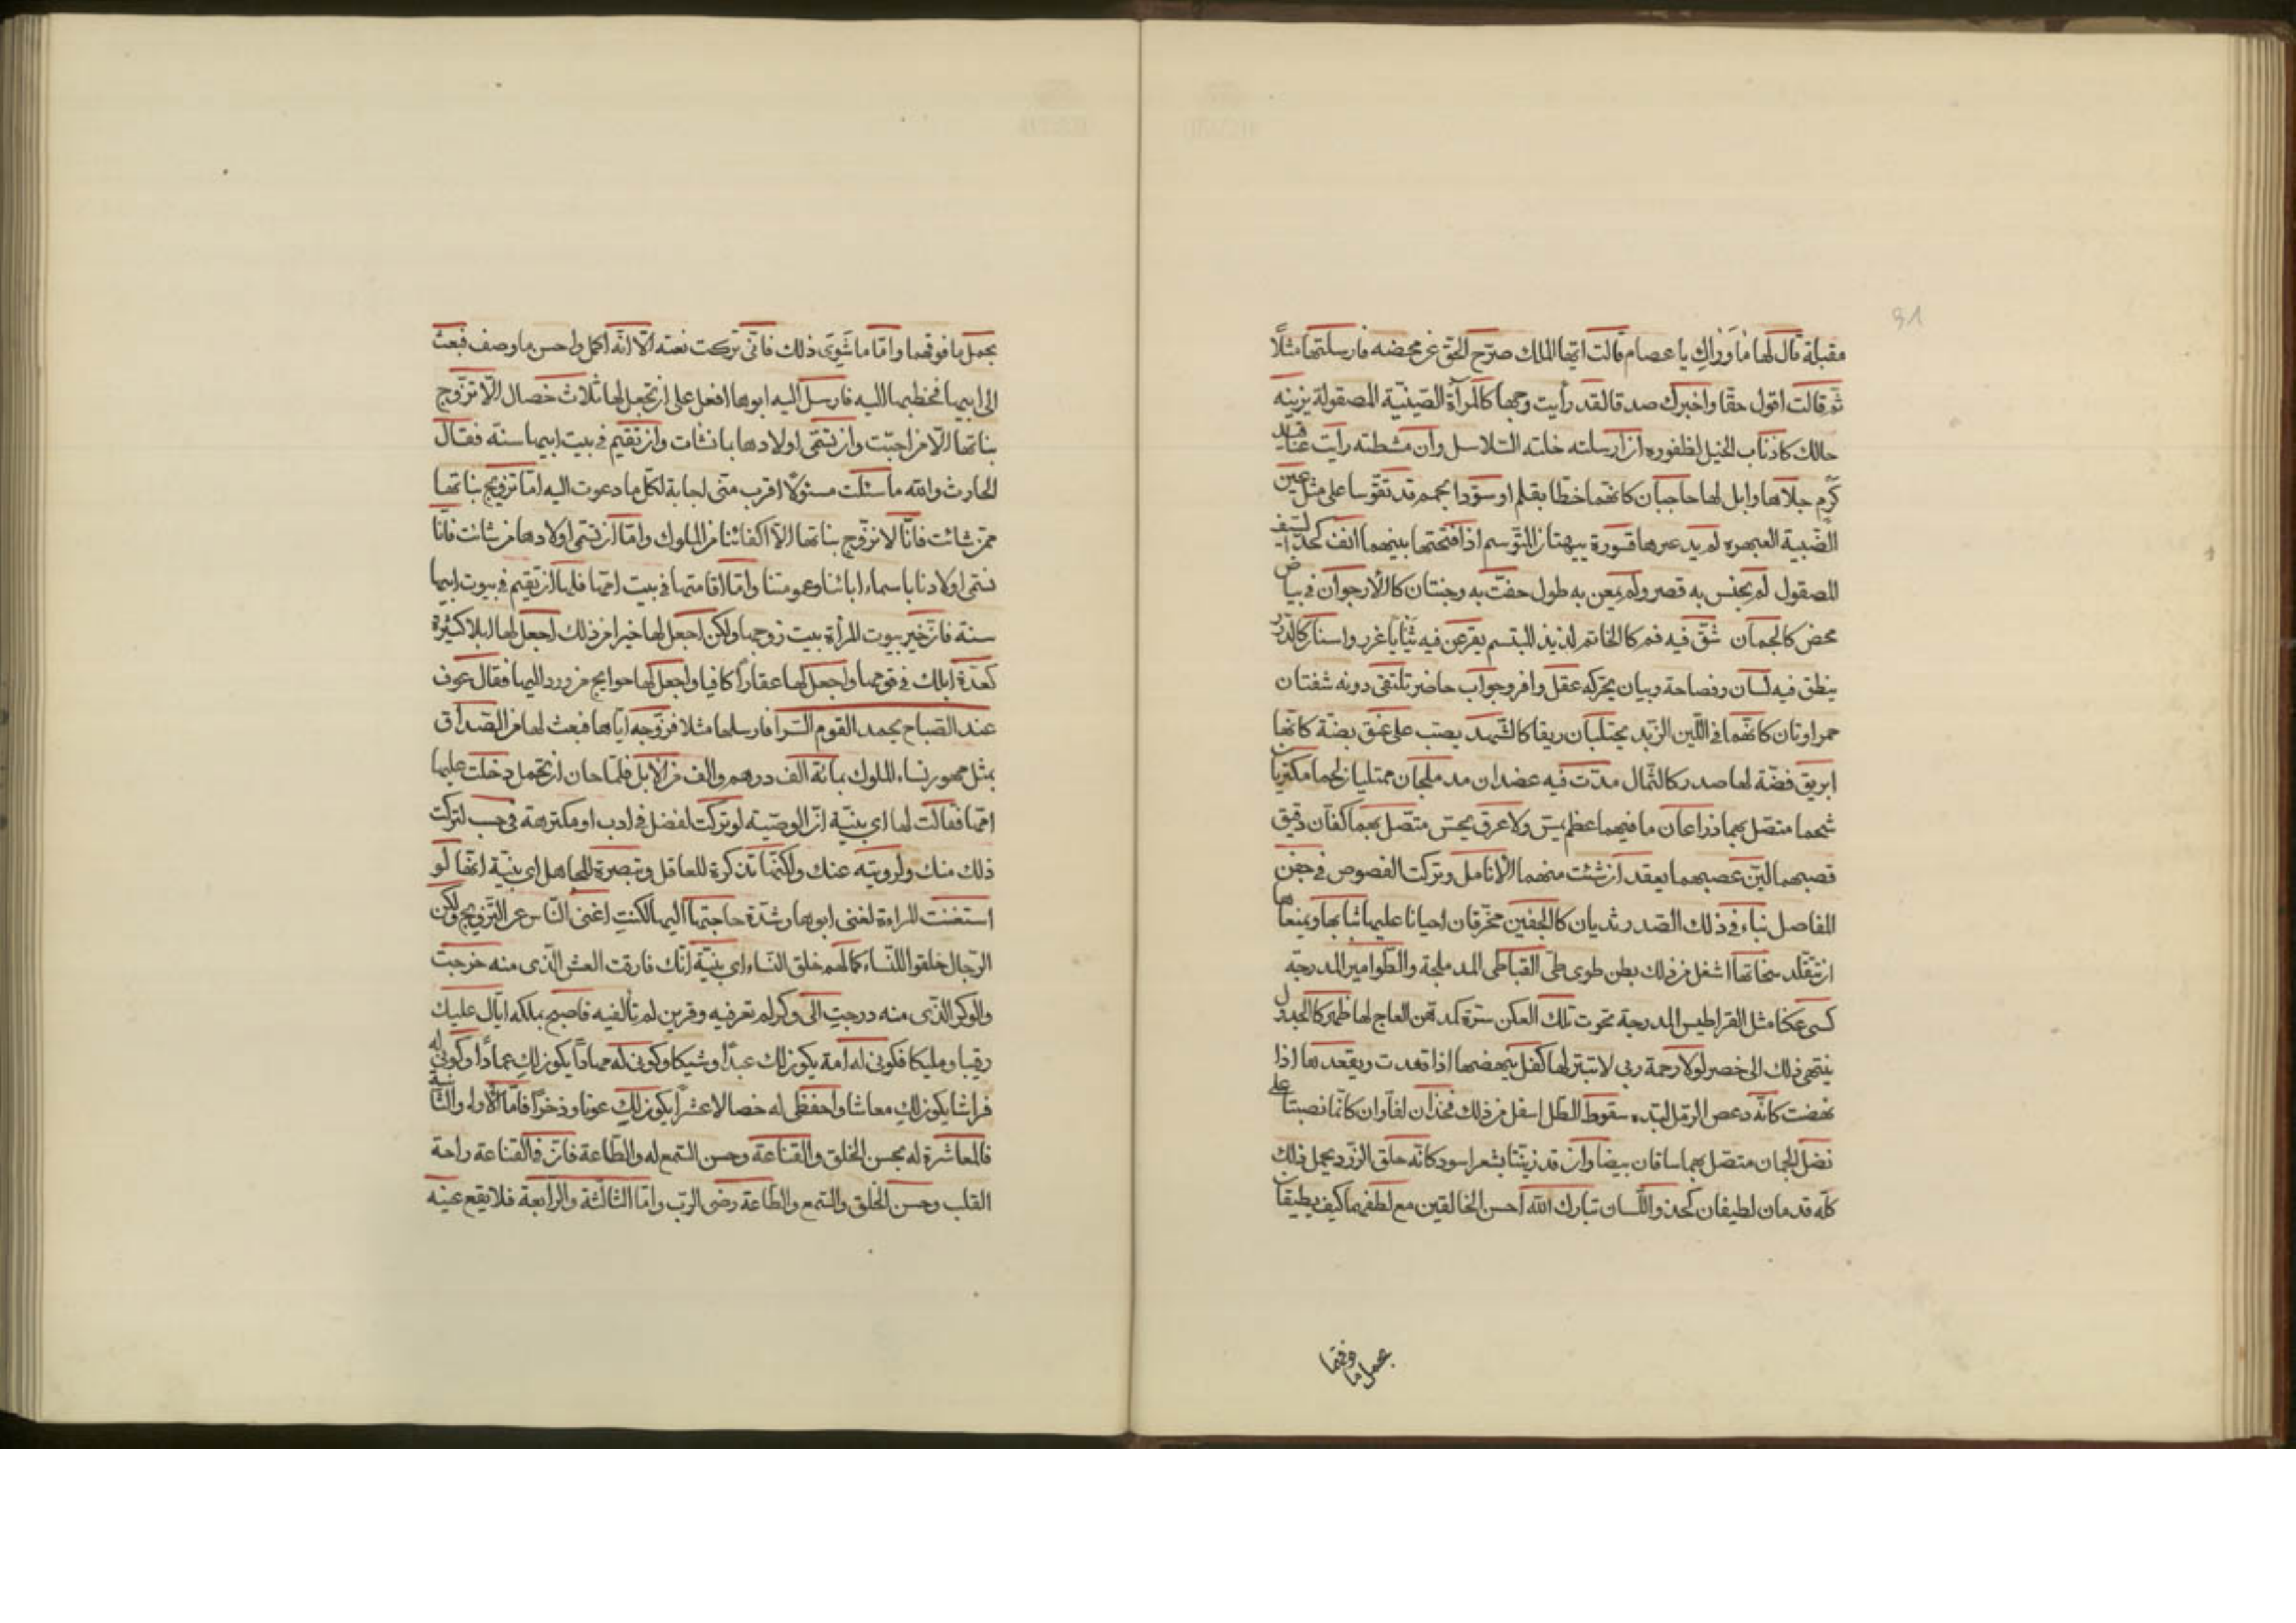 91
مقبلة قال لها ما وراك يا عصام قالت ايها الملك صرّح الحق عن محضه فارسلتها مثلاً
ثم قالت اقول حقا واخبرك صدقا لقد رأيت وجها كالمرآة الصّينيّة المصقولة يزينه
حالك كاذناب الخيل لظفوره ان ارسلته خلته السّلاسل وان مشطته رأيت عناقيد
كرم جلاها وابل لها حاجبان كانّهما خطّا بقلم او سوّدا بحمم قد تقوّسا على مثل عين
الضّبية العبهره لم يدعرها قسورة يبهتان المتوسم اذا فتحتها بينهما انف كحدّ السّيف
المصقول لم يخنس به قصر ولم يمعن به طول حفّت به وجنتان كالارجوان في بياض
محض كالجمان شقّ فيه فم كالخاتم لذيذ المبتسم يقرعن فيه ثنايا غرر واسنان كالدّرر
ينطق فيه لسان وفصاحة وبيان يحرّكه عقل وافر وجواب حاضر تلتقى دونه شفتان
حمراوتان كانّهما في اللّين الزّبد يحتلبان ريقا كالشّهد يصبّ على عنق بضّة كانّها
ابريق فضّة لها صدر كالتّمثال مدّت فيه عضدان مدملجان ممتليان لحما مكتنزيان
شحما متصّل بهما ذراعان ما فيهما عظم يمسّ ولا عرق يجسّ متّصل بهما كفّان دقيق
قصبهما ليّن عصبهما يعقد ان شئت منهما الانامل وتركت الفصوص في جفن
المفاصل نباء في ذلك الصّدر ثديان كالحقين يخرّقان احيانا عليها ثيابها ويمنعاها
ان تتقلّد سخاتها اسفل من ذلك بطن طوى طىّ القباطى المدملجة والطّوامير المدرجة
كسى عكنا مثل القراطيس المدرجة تحوت تلك العكن سترة كمدقّن العاج لها ظهر كالجدول
ينتهى ذلك الى خصر لولا رحمة ربى لا تبتر لها كفل ينهضها اذا قعدت ويقعدها اذا
نهضت كانّه دعص الرمّل لبّده سقوط الطّل اسفل من ذلك فخذان لفّاوان كانّما نصبتا على
نضل الجمان متصّل بهما ساقان بيضاوان قد زيّنتا بشعر اسود كانّه حلق الزّرد يحمل ذلك
كلّه قدمان لطيفان كحذو اللّسان تبارك اللّه احسن الخالقين مع لطفهما كيف يطيقان
بحمل ما فوقهما
بحمل ما فوقهما وامّا ما سوى ذلك فانّى تركت نعته الّا انّه اكمل واحسن ما وصف فبعث
الى ابيها فخطبها اليه فارسل اليه ابوها افعل على ان تجعل لها ثلاث خصال الّا تزّوج
بناتها الّا من احبّت وان تسمّى اولادها بانشات وان تقيم في بيت ابيها سنة فقال
الحارث والله ما سئلت مسئولاً اقرب منّى لجابة لكلّ ما دعوت اليه امّا تزويج بناتها
ممّن شائت فانّا لا نزوّج بناتها الّا اكفائنا من الملوك وامّا ان تسمّى اولادها من شائت فانّا
نسمّى اولادنا باسماء ابائنا وعمومتنا وامّا اقامتها في بيت امّها فلها ان تقيم في بيوت ابيها
سنة فان خير بيوت المرأة بيت زوجها ولكن اجعل لها خيرا من ذلك اجعل لها ابلا كثيرة
كعدّة ابلك في قومها واجعل لها عقاراً كافيا واجعل لها حوايج من ورد اليها فقال عوف
عند الصّباح يحمد القوم السّرا فارسلها مثلا فزوّجه ايّاها فبعث لها من الصّداق
بمثل مهور نساء الملوك بمائة الف درهم والف من الابل فلمّا حان ان تحمل دخلت عليها
امّها فقالت لها اى بنيّة انّ الوصيّة لو تركت لفضل في ادب او مكترمة في حسب لتركت
ذلك منك ولزويته عنك ولكنّها تذكرة للعاقل وتبصرة للجاهل اى بنيّة انّها لو
استغنت المراءة لغنى ابوها وشدّة حاجتها اليها لكنت اغنى النّاس عن التّزويج ولكن
الرّجال خلقوا للنّساء كما لهم خلق النّساء اى بنيّة انّك فارقت العش الّذى منه خرجت
والوكر الّذى منه درجت الى وكر لم تعرفيه وقرين لم تألفيه فاصبح بملكه ايّاك عليك
رقيبا ومليكا فكونى له امة يكون لك عبداً وشيكا وكونى له مهاداً يكون لك عماداً وكونى له
فراشا يكون لك معاشا واحفظى له خصالا عشراً يكون لك عونا وذخراً فامّا الأولى والثّانية
فالمعاشرة له بحسن الخلق والقناعة وحسن السّمع له والطّاعة فانّ في القناعة راحة
القلب وحسن الخلق والسّمع والطّاعة رضى الربّ وامّا الثالثة والرّابعة فلا يقع عينه